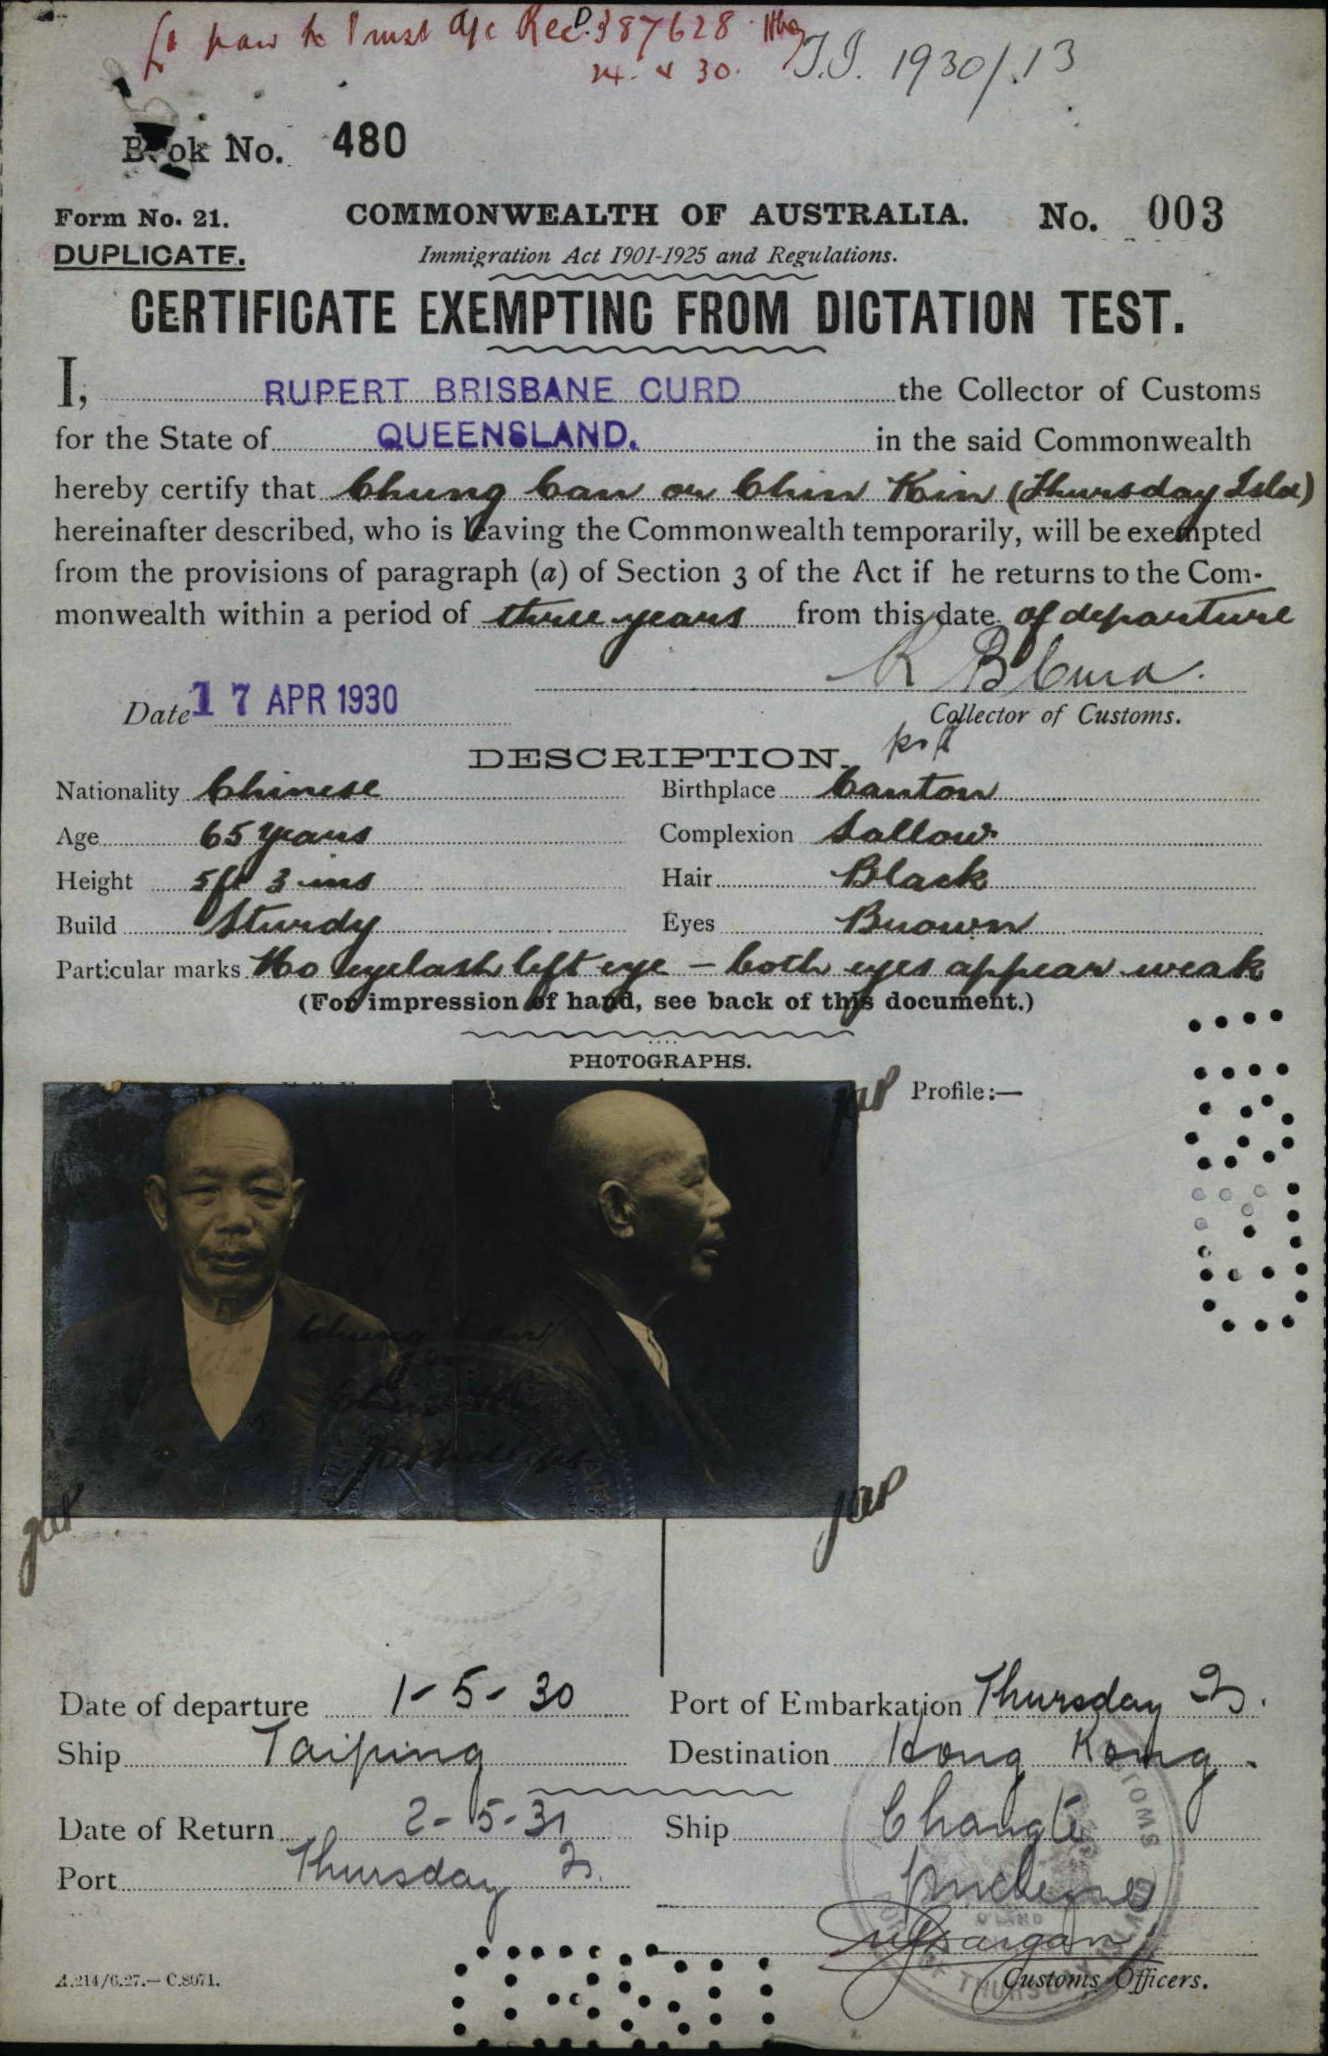 to Trust a/c Rec D. 387628
24. 4 30.
T.I. 1930/.13
Book No. 480
Form No. 21.
COMMONWEALTH OF AUSTRALIA.
No. 003
DUPLICATE.
Immigration Act 1901-1925 and Regulations.
CERTIFICATE EXEMPTING FROM DICTATION TEST.
I, RUPERT BRISBANE CURD the Collector of Customs
for the State of QUEENSLAND. in the said Commonwealth
hereby certify that Chung Can or Chin Kin (Thursday Isld)
hereinafter described, who is leaving the Commonwealth temporarily, will be exempted
from the provisions of paragraph (a) of Section 3 of the Act if he returns to the Com-
monwealth within a period of three years from this date of departure
R B Curd.
Date 17 APR 1930
Collector of Customs.
DESCRIPTION.
Nationality Chinese
Birthplace Canton
Age 65 years
Complexion Sallow
Height 5ft 3 ins
Hair Black
Build Sturdy
Eyes Brown
Particular marks No eyelash left eye - both eyes appear weak
(For impression of hand, see back of this document.)
PHOTOGRAPHS.
Profile:—
Chung Can
Date of departure 1-5-30
Port of Embarkation Thursday Is.
Ship Taiping
Destination Hong Kong.
Date of Return 2-5-31
Ship Changte
Port Thursday Is.
Customs Officers.
A.214/6.27.—C.8071.